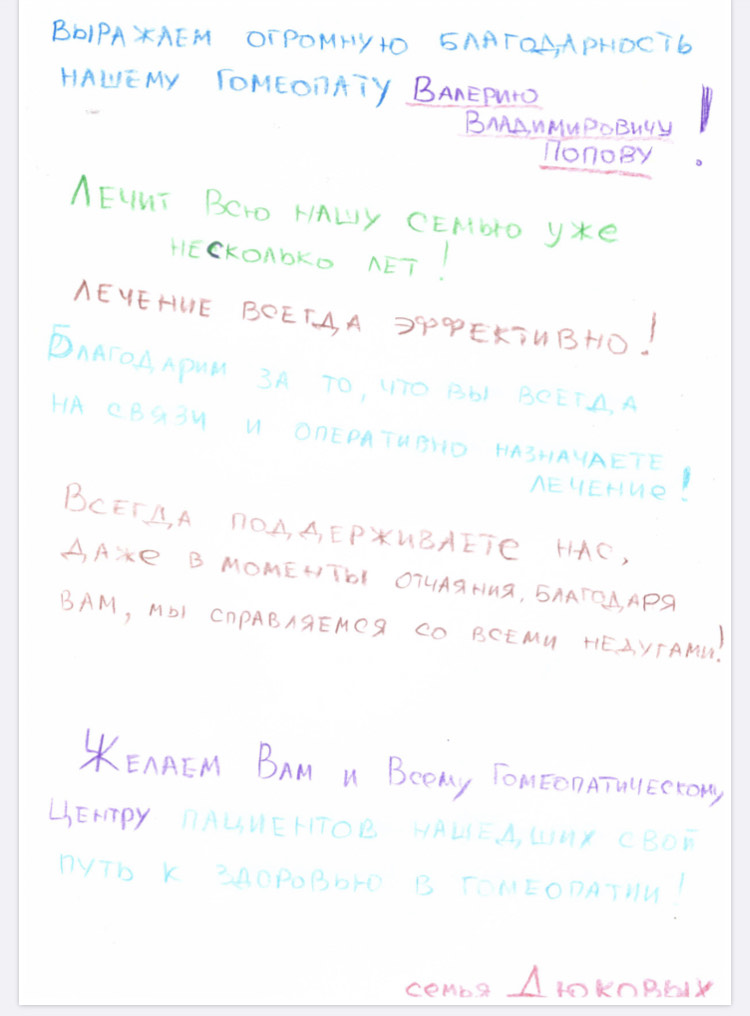 Выражаем огромную благодарность
нашему гомеопату Валерию
Владимировичу
Попову!
Лечит всю нашу семью уже
несколько лет!
Лечение всегда эффективно!
Благодарим за то, что вы всегда
на связи и оперативно назначаете
лечение!
Всегда поддерживаете нас,
даже в моменты отчаяния. Благодаря
вам, мы справляемся со всеми недугами!
Желаем Вам и Всему Гомеопатическому
Центру пациентов нашедших свой
путь к здоровью в гомеопатии!
семья Дюковых